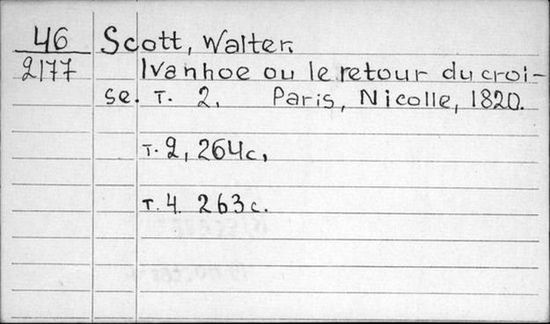 46 Scott, Walter.
2177 Ivanhoe ou le retour du croi-
se. т. 2. Paris, Nicolle, 1820.
т. 2, 264 с.
т. 4. 263 с.